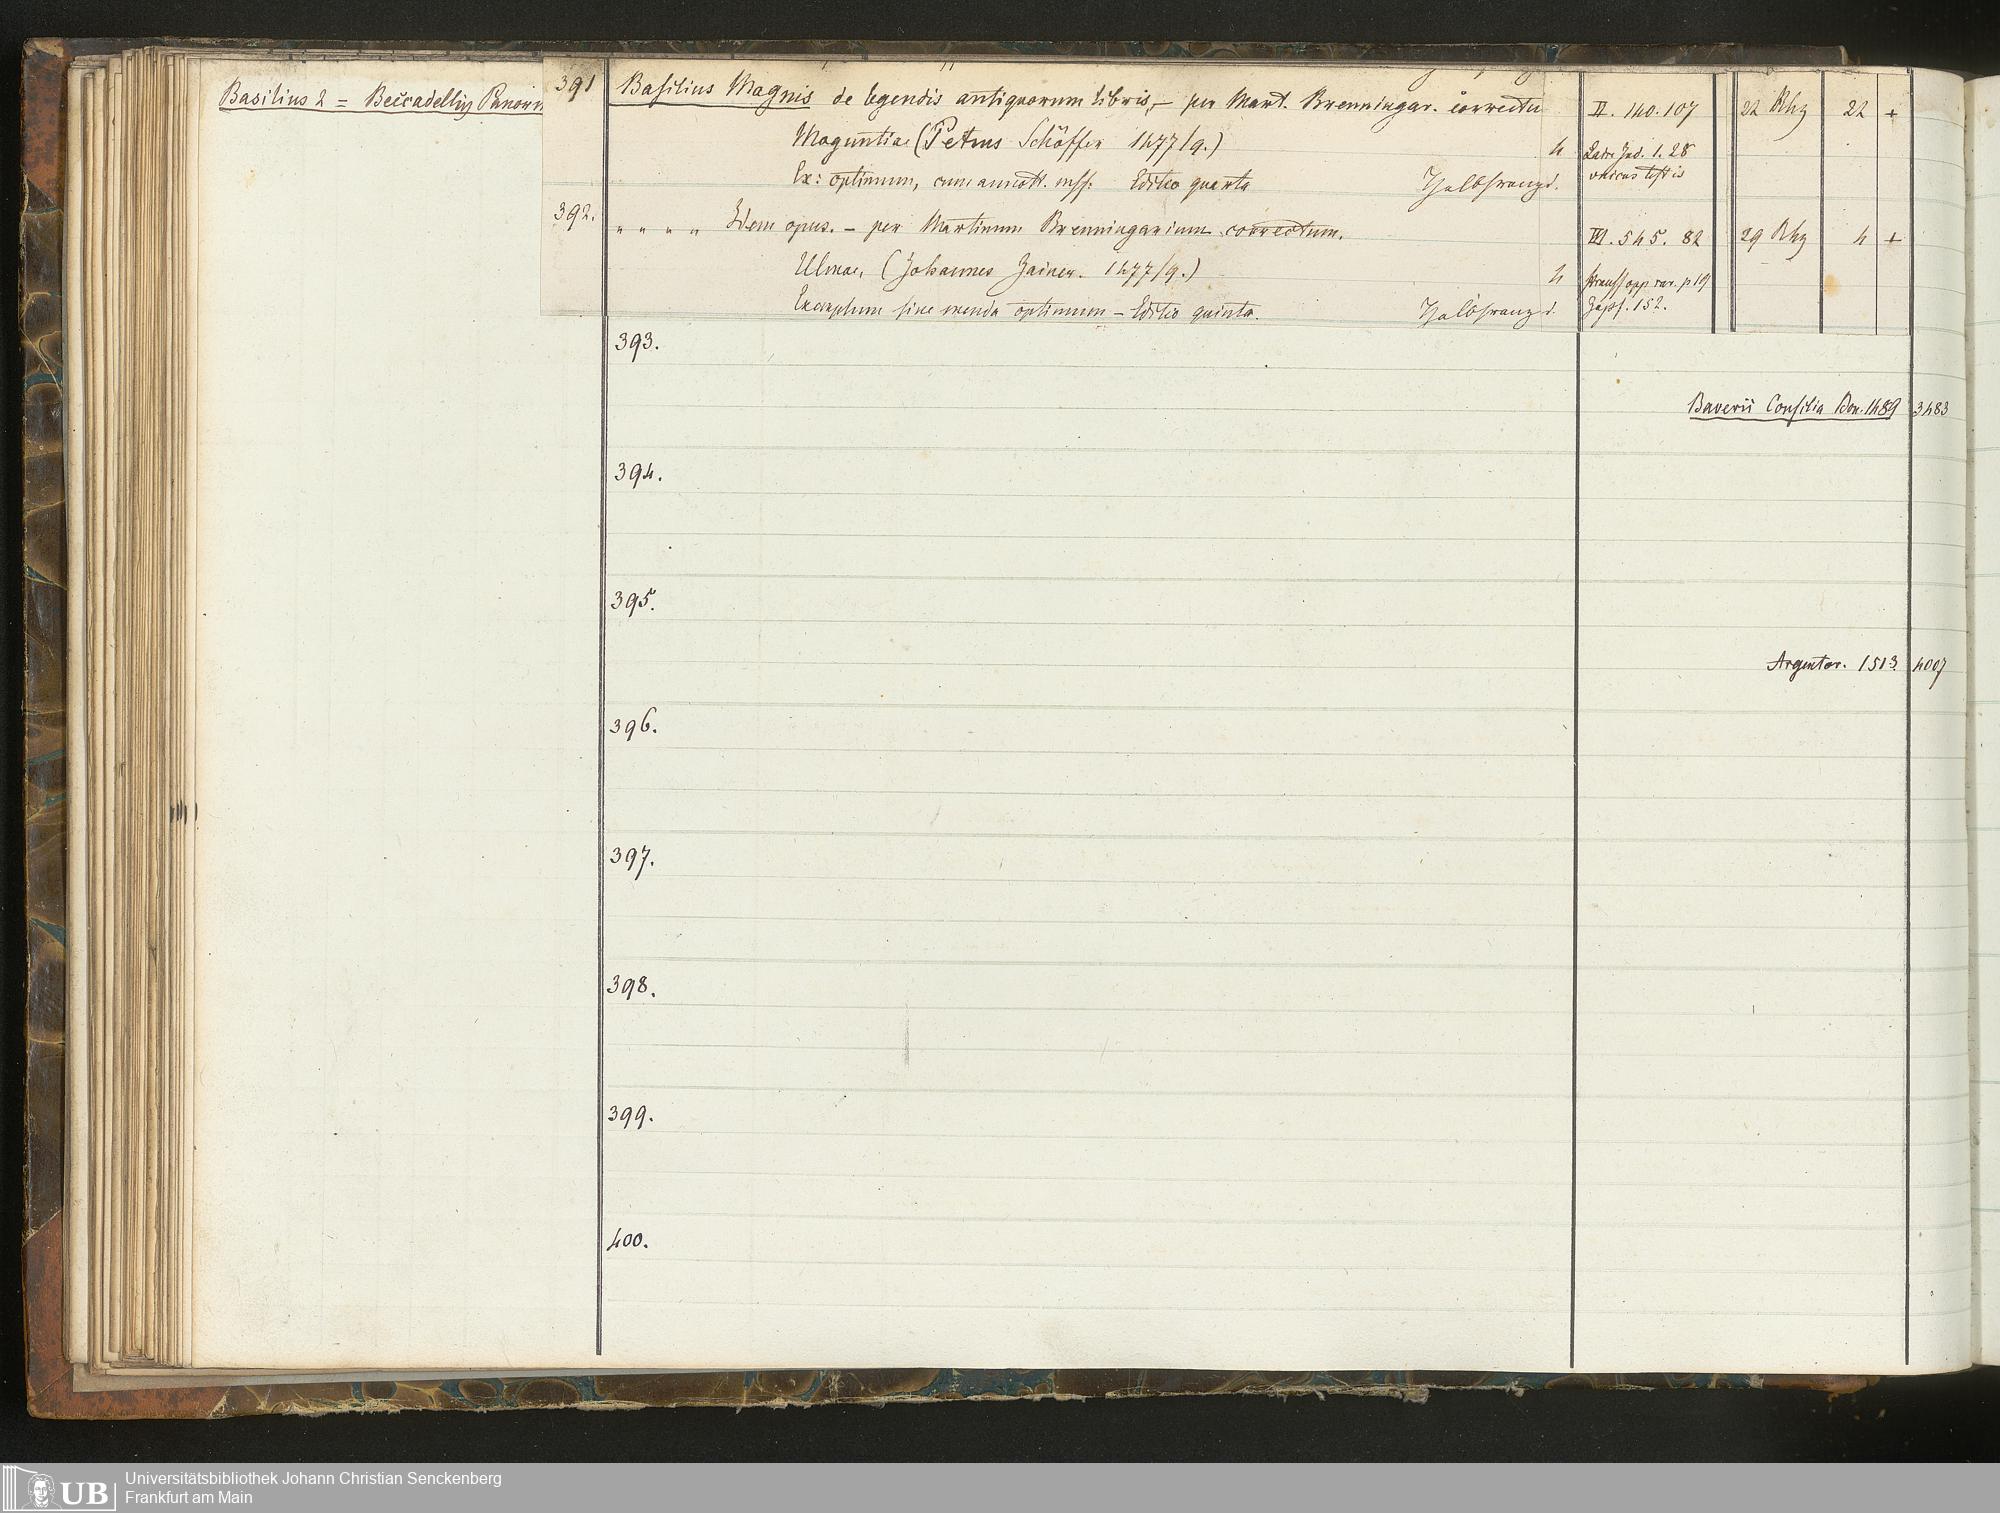 Basilius 2 = Beccadelli
391 Basilius Magnis de legendis antiquorum libris, – per Mart. Brenningar. correctu
II. 140. 107 22 Rhz 22 +
Maguntiae (Petrus Schöffer 1477/9.) 4
1. 28
unicus testis
Ex: optimum, cum annott. mss. Editio quarta Halbfranzd.
392. " " " " Idem opus. – per Martinum Brenningarium correctum.
III. 545. 82 29 Rhz 4 +
Ulmae, (Johannes Zainer. 1477/9.) 4
opp. rar. p 19
Exemplum sine menda optimum – Editio quinta. Halbfranzd.
Zapf. 152.
393.
Baverii Consilia Bon. 1489 3483
394.
395.
Argentor. 1513. 4007
396.
397.
398.
399.
400.
UB
Universitätsbibliothek Johann Christian Senckenberg
Frankfurt am Main